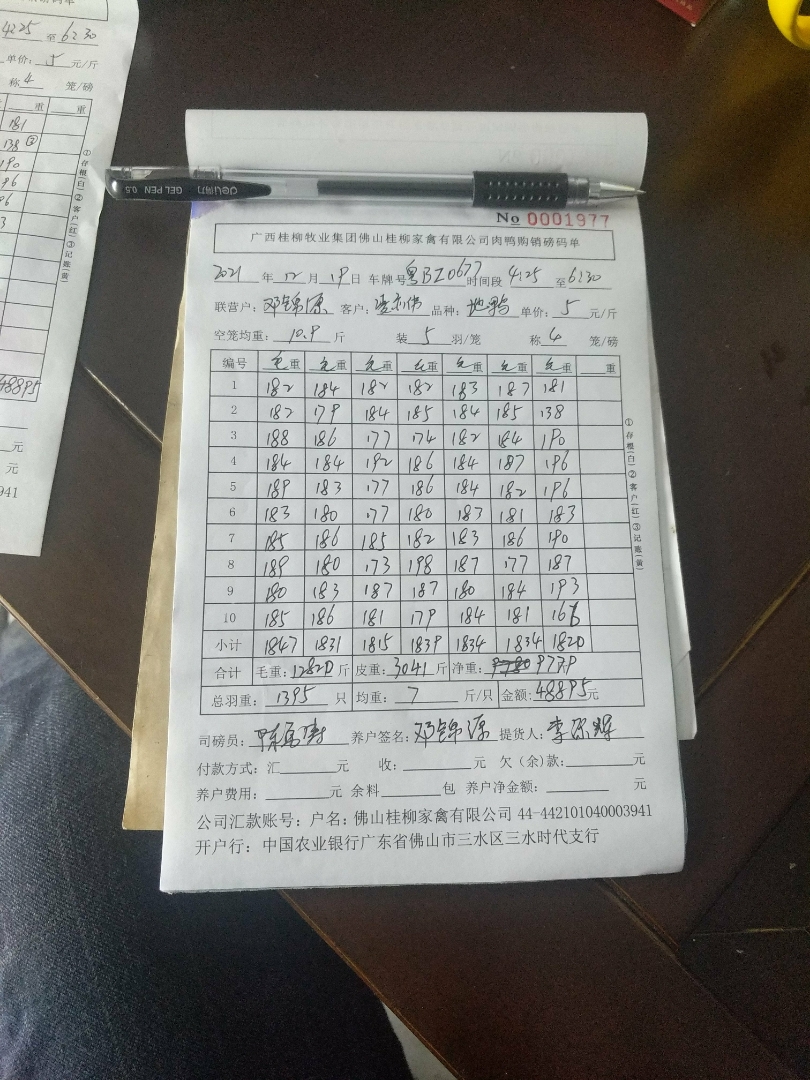 4:25 至 6:30
单价: 5 元/斤
称 4 笼/磅
重 重
181
138 ③
190
①存根(白)②客户(红)③记账(黄)
48895
元
元
941
deli得力 GEL PEN 0.5
No 0001977
广西桂柳牧业集团佛山桂柳家禽有限公司肉鸭购销磅码单
2021 年 12 月 19 日 车牌号 粤BZ0677 时间段 4:25 至 6:30
联营户: 邓锦源 客户: 品种: 地鸭 单价: 5 元/斤
空笼均重: 10.9 斤 装 5 羽/笼 称 4 笼/磅
编号 毛重 毛重 毛重 毛重 毛重 毛重 毛重 重
1 182 184 182 182 183 187 181
2 182 179 184 185 184 185 138
3 188 186 177 174 182 184 190
4 184 184 192 186 184 187 196
5 189 183 177 186 184 182 196
6 183 180 177 180 183 181 183
7 185 186 185 182 183 186 190
8 189 180 173 198 187 177 187
9 180 183 187 187 180 184 193
10 185 186 181 179 184 181 166
小计 1847 1831 1815 1839 1834 1834 1820
合计 毛重: 12820 斤 皮重: 3041 斤 净重: 9780 9779
总羽重: 1395 只 均重: 7 斤/只 金额: 48895 元
①存根(白)②客户(红)③记账(黄)
司磅员: 养户签名: 邓锦源 提货人:
付款方式: 汇 元 收: 元 欠(余)款: 元
养户费用: 元 余料 包 养户净金额: 元
公司汇款账号: 户名: 佛山桂柳家禽有限公司 44-442101040003941
开户行: 中国农业银行广东省佛山市三水区三水时代支行